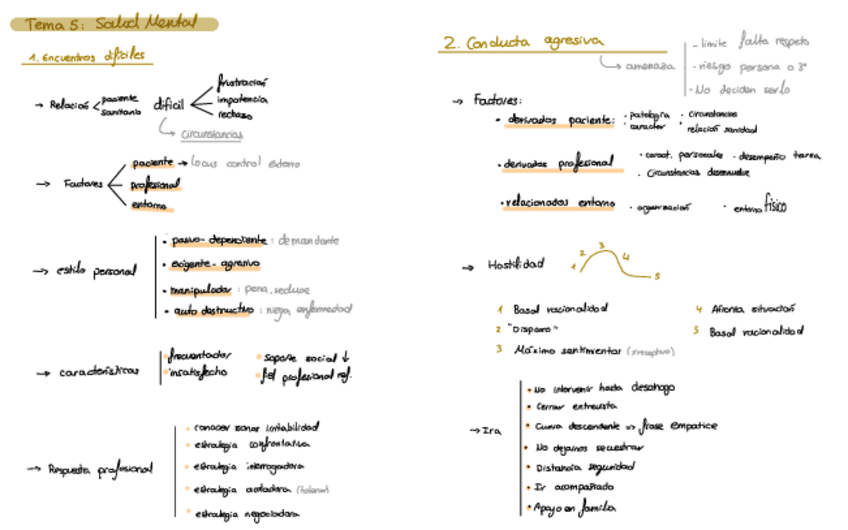 Tema 5: Salud Mental
1. Encuentros difíciles
→ Relación < paciente sanitario difícil < frustración impotencia rechazo
↳ circunstancias
→ Factores
paciente → locus control externo
profesional
entorno
→ estilo personal
• pasivo-dependiente: demandante
• exigente-agresivo
• manipulador: pena, seduce
• auto destructivo: niega enfermedad
→ características
• frecuentador
• insatisfecho
• soporte social ↓
• fiel profesional ref.
→ Respuesta profesional
• conocer zonas irritabilidad
• estrategia confrontativa
• estrategia interrogadora
• estrategia acotadora
• estrategia negociadora
2. Conducta agresiva
↳ amenaza
- límite falta respeto
- riesgo persona o 3º
- No deciden serlo
→ Factores:
• derivados paciente: · patología · carácter · circunstancias relación sanidad
• derivados profesional · caract. personales · desempeño tarea
· Circunstancias desenvuelve
• relacionados entorno · organización · entorno físico
→ Hostilidad
1 2 3 4 5
1 Basal racionalidad
2 "Disparo"
3 Máximo sentimientos
4 Afronta situación
5 Basal racionalidad
→ Ira
• No intervenir hasta desahogo
• Cerrar entrevista
• Curva descendente => frase empatice
• No dejarnos secuestrar
• Distancia seguridad
• Ir acompañado
• Apoyo en familia